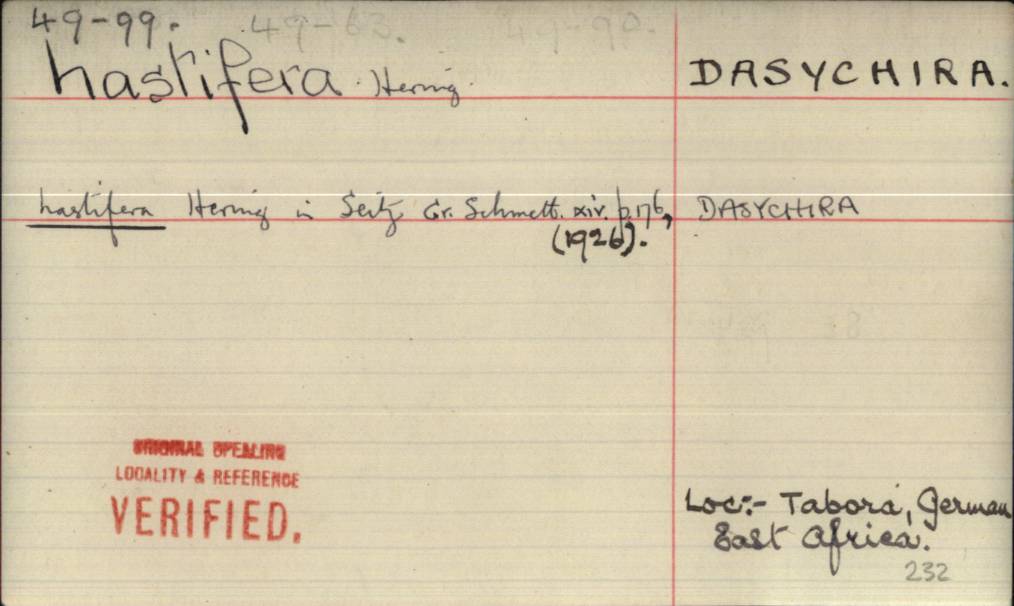 49-99. 49-63. 49-90.
hastifera Hering DASYCHIRA.
hastifera Hering in Seitz Gr. Schmett. xiv. p. 176, DASYCHIRA
(1926).
ORIGINAL SPELLING
LOCALITY & REFERENCE
VERIFIED.
Loc:- Tabora, German
East Africa.
232